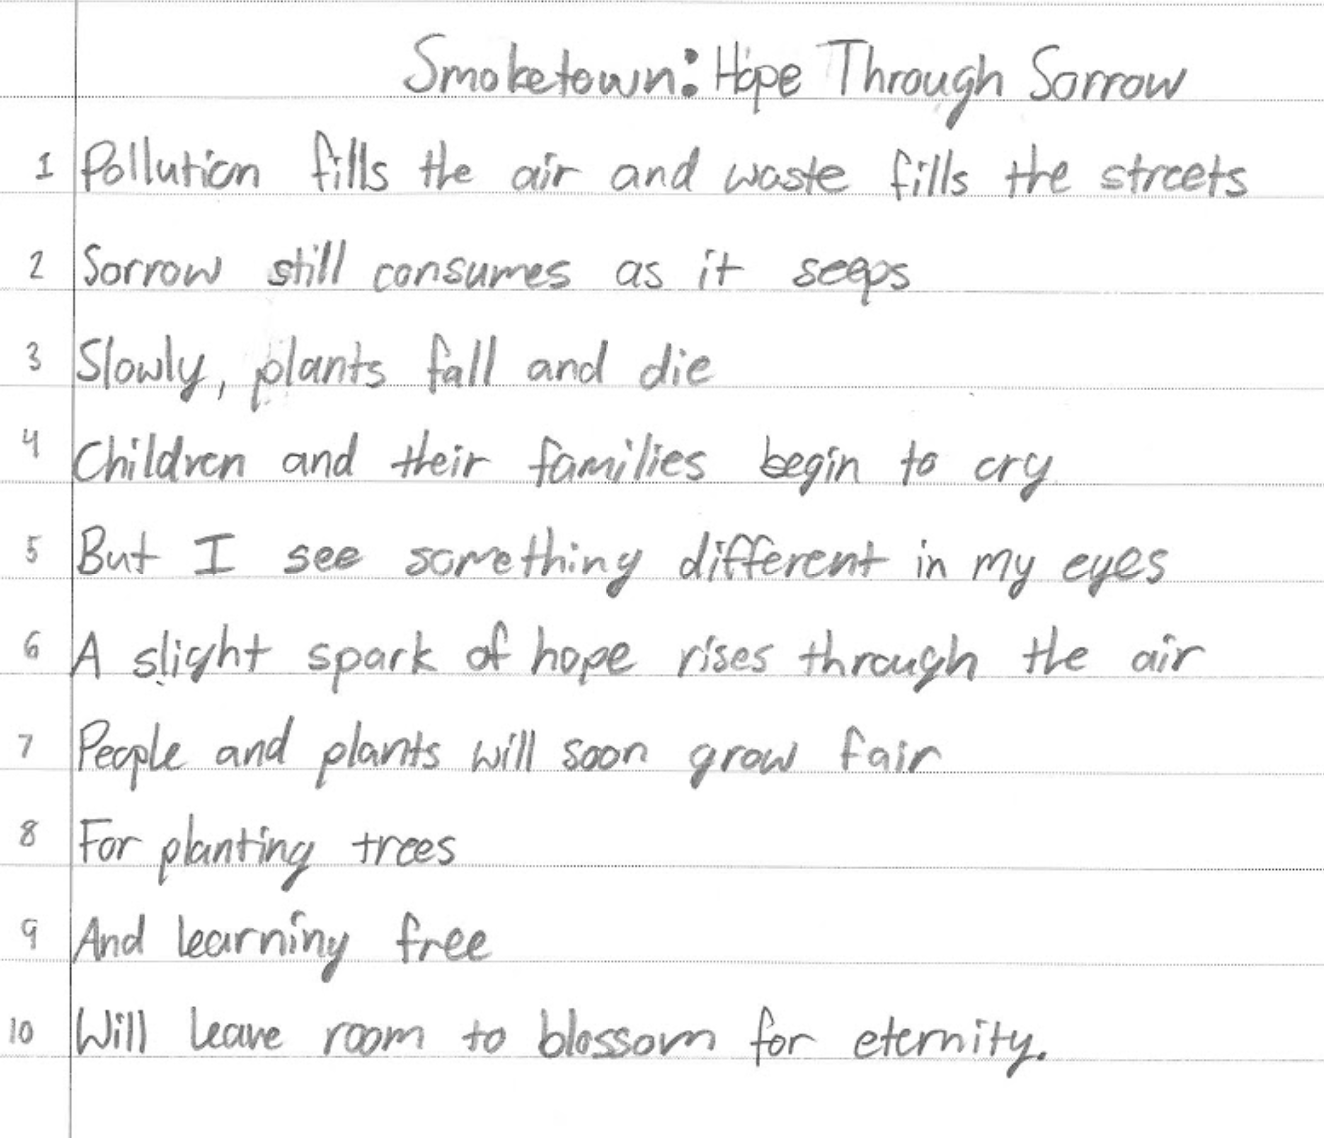 Smoketown: Hope Through Sorrow
1 Pollution fills the air and waste fills the streets
2 Sorrow still consumes as it seeps
3 Slowly, plants fall and die
4 Children and their families begin to cry
5 But I see something different in my eyes
6 A slight spark of hope rises through the air
7 People and plants will soon grow fair
8 For planting trees
9 And learning free
10 Will leave room to blossom for eternity.